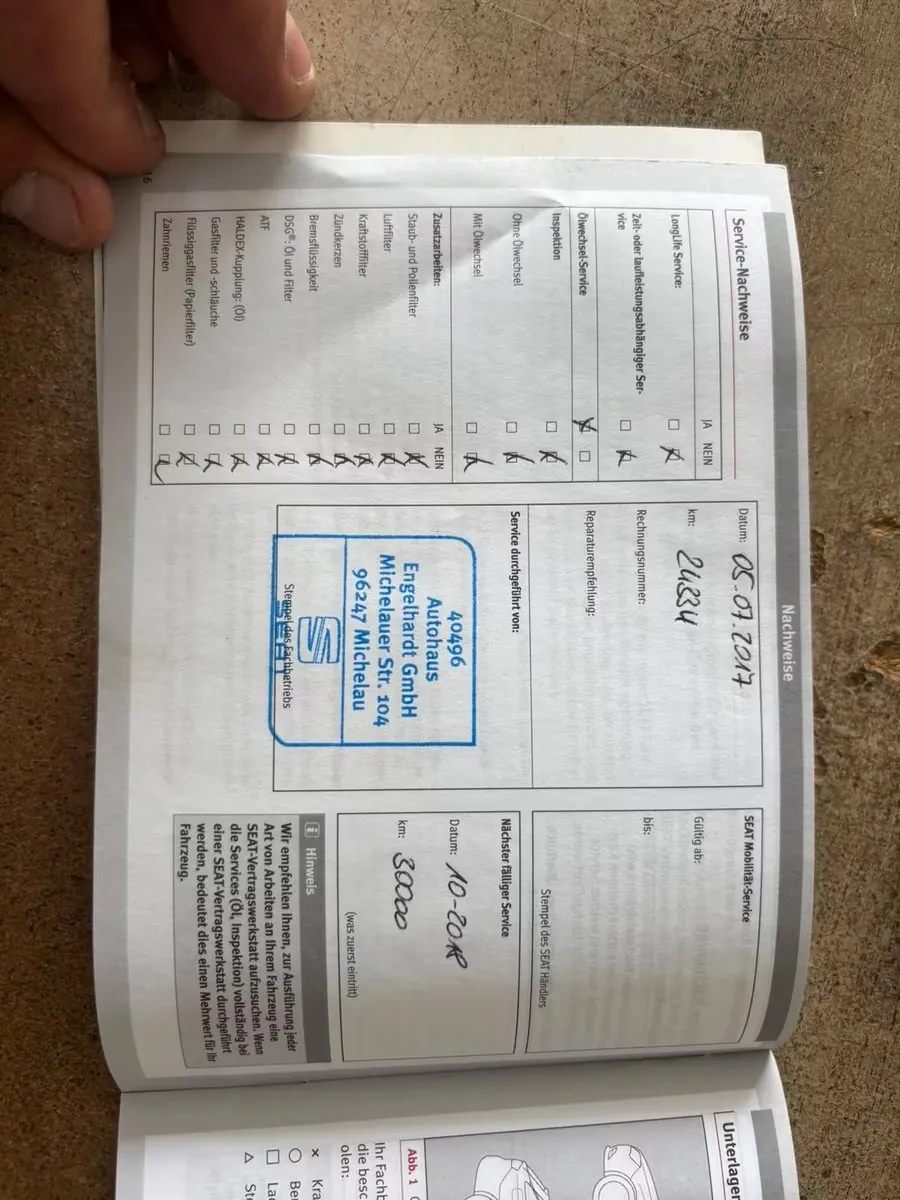 Nachweise
Service-Nachweise
JA NEIN
LongLife Service:
Zeit- oder laufleistungsabhängiger Ser-
vice
Ölwechsel-Service
Inspektion
Ohne Ölwechsel
Mit Ölwechsel
Zusatzarbeiten:
JA NEIN
Staub- und Pollenfilter
Luftfilter
Kraftstofffilter
Zündkerzen
Bremsflüssigkeit
DSG®: Öl und Filter
ATF
HALDEX-Kupplung: (Öl)
Gasfilter und -schläuche
Flüssiggasfilter (Papierfilter)
Zahnriemen
16
Datum: 05.07.2017
km: 24334
Rechnungsnummer:
Reparaturempfehlung:
Service durchgeführt von:
40496
Autohaus
Engelhardt GmbH
Michelauer Str. 104
96247 Michelau
SEAT
Stempel des Fachbetriebs
SEAT Mobilität-Service
Gültig ab:
bis:
Stempel des SEAT Händlers
Nächster fälliger Service
Datum: 10-2018
km: 30000
(was zuerst eintritt)
i Hinweis
Wir empfehlen Ihnen, zur Ausführung jeder
Art von Arbeiten an Ihrem Fahrzeug eine
SEAT-Vertragswerkstatt aufzusuchen. Wenn
die Services (Öl, Inspektion) vollständig bei
einer SEAT-Vertragswerkstatt durchgeführt
werden, bedeutet dies einen Mehrwert für Ihr
Fahrzeug.
Unterlagen
Abb. 1
Ihr Fachb
die besc
olen:
× Kra
○ Beu
□ Lac
△ Ste